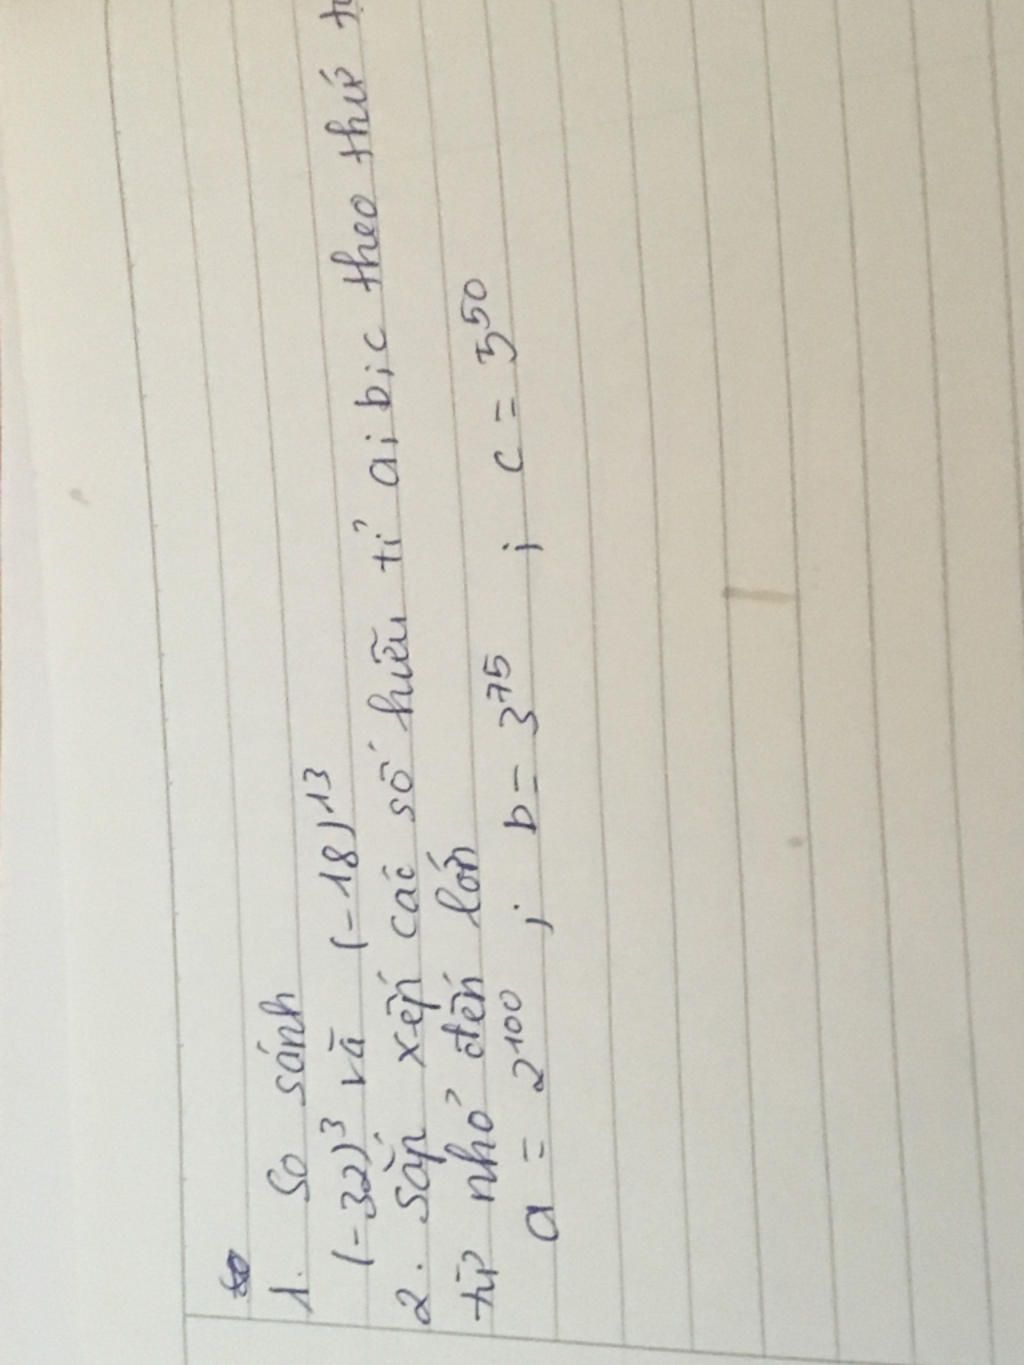 1. So sánh
(-32)³ và (-18)¹³
2. Sắp xếp các số hữu tỉ a; b; c theo thứ
từ nhỏ đến lớn
a = 2¹⁰⁰ ; b = 3⁷⁵ ; c = 5⁵⁰